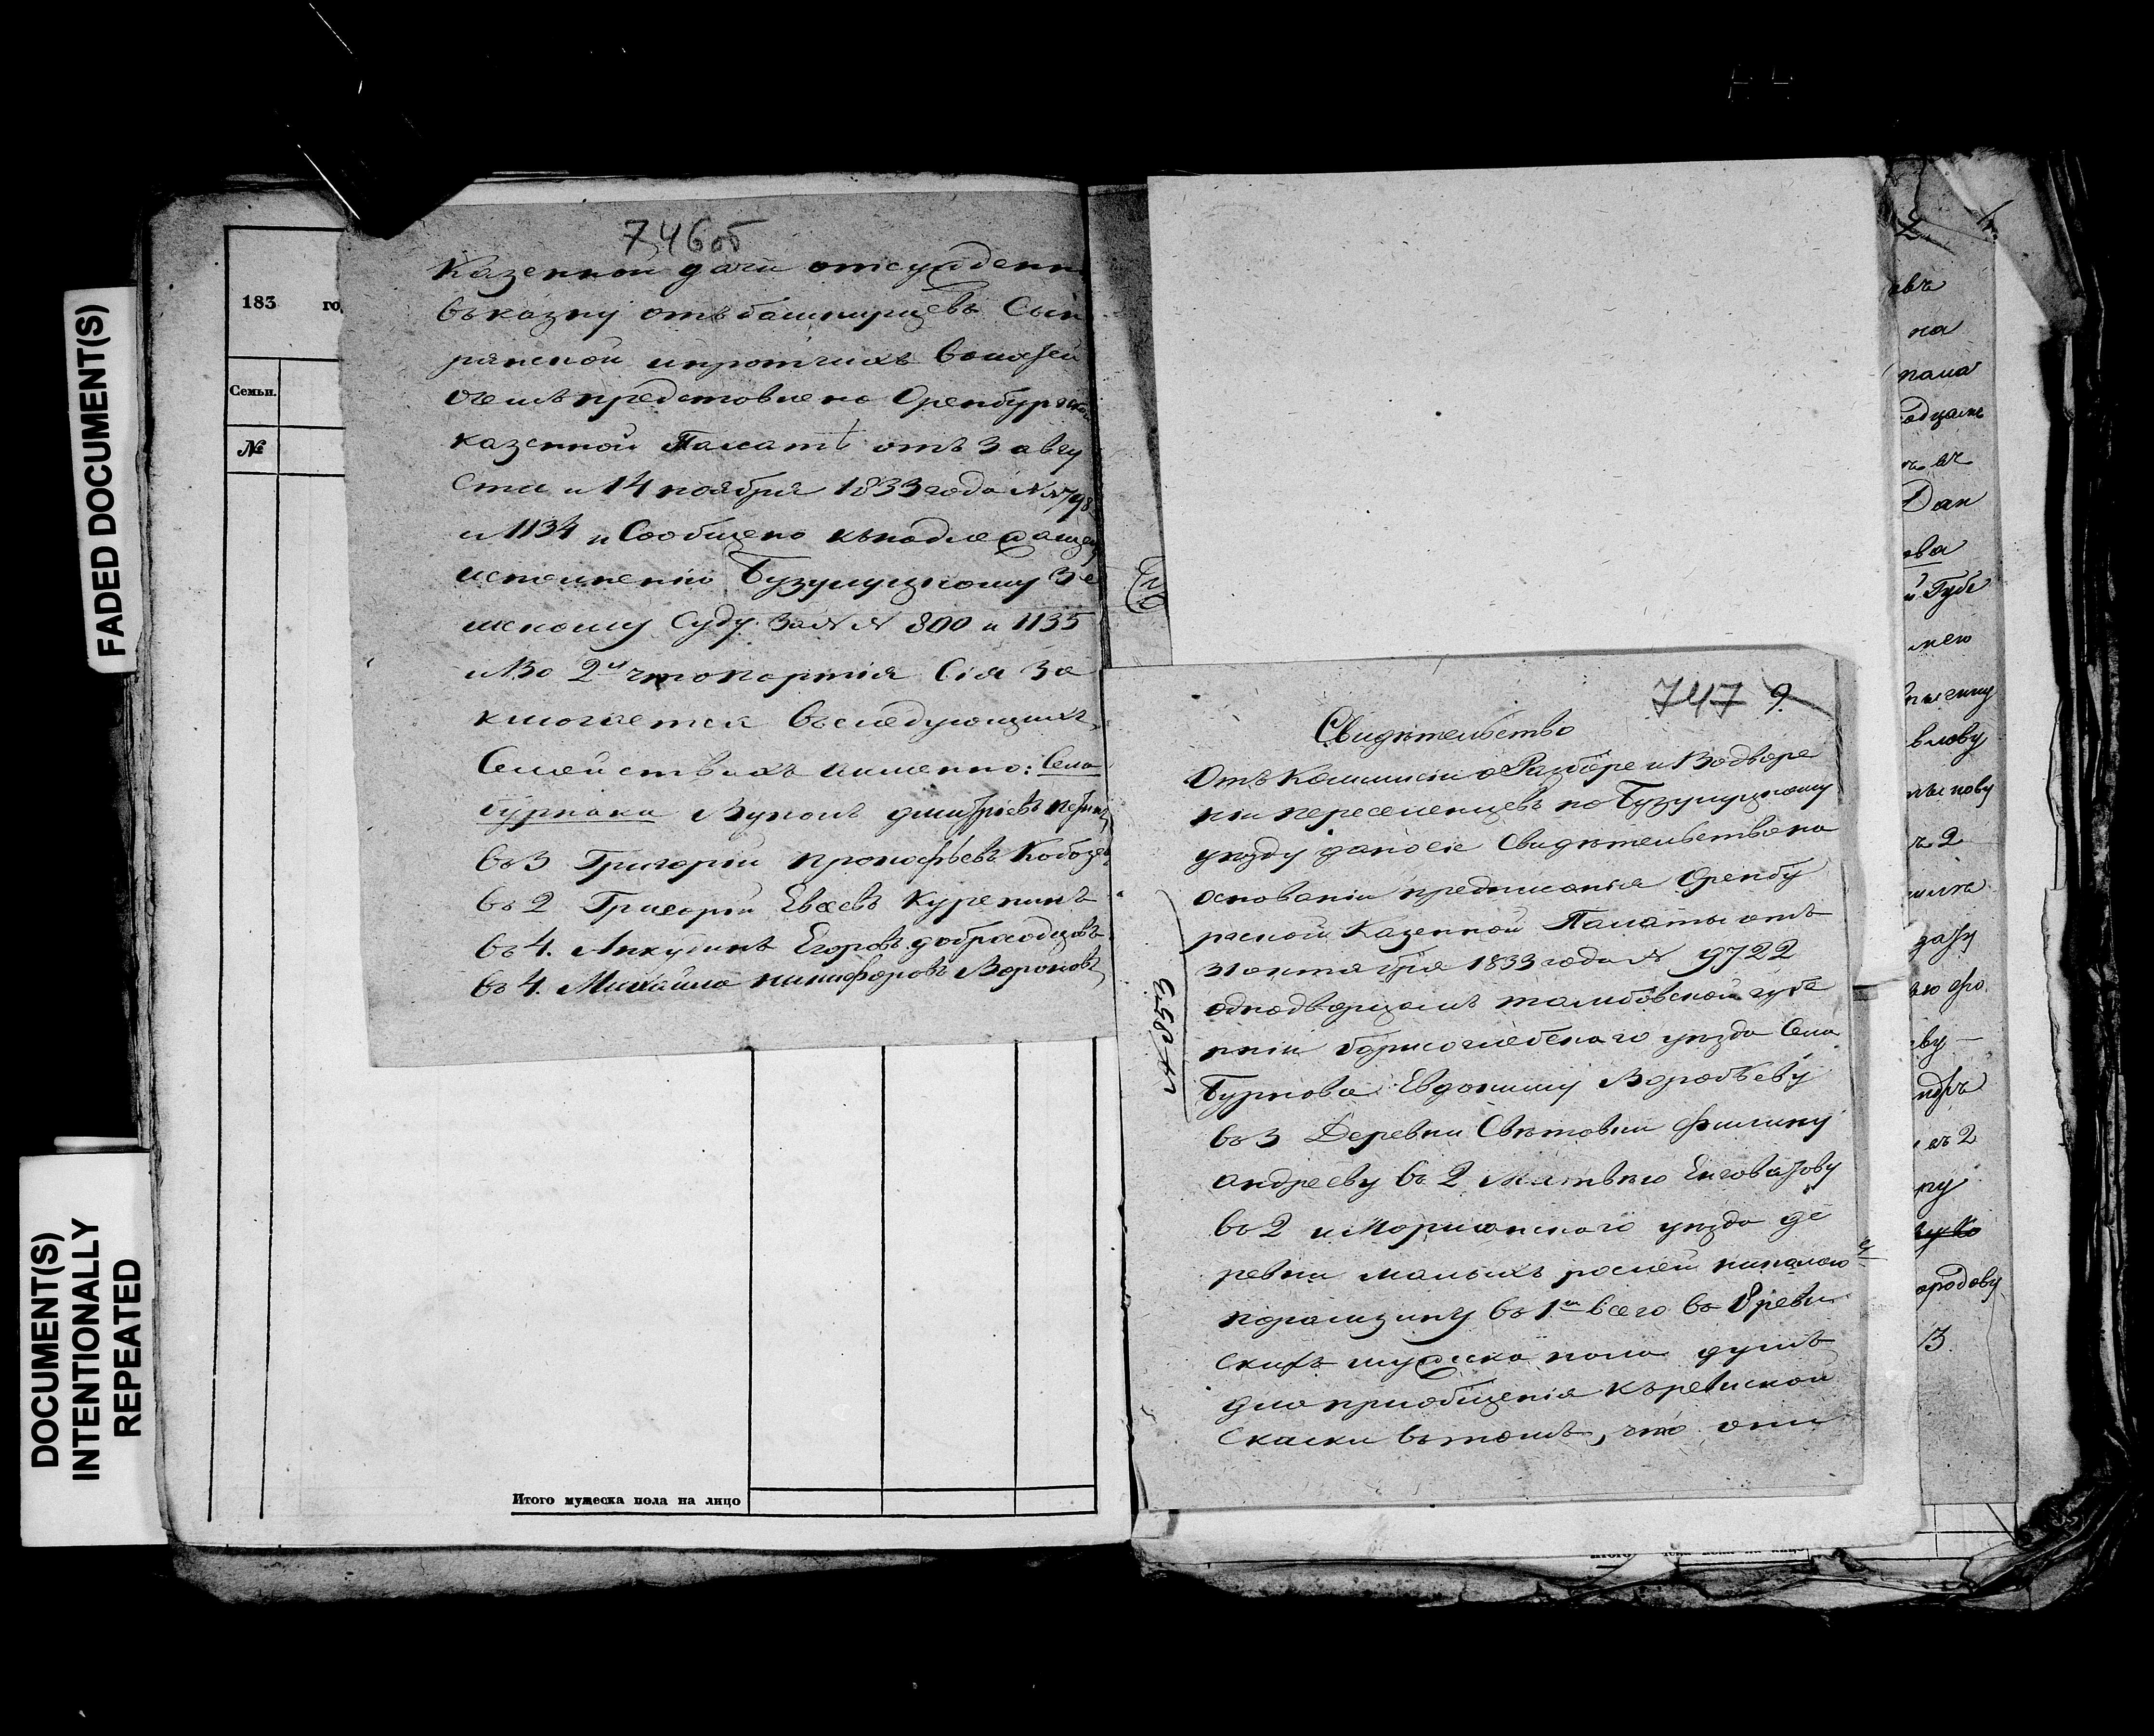 FADED DOCUMENT(S)
DOCUMENT(S)
INTENTIONALLY
REPEATED
183 го
Семьи.
№
746об
Казенной дачи отсужденн
въ казну отъ башкирцевъ Сып
рянской и протчихъ волостей
о чемъ предстовлено Оренбургской
казенной Палатѣ отъ 3 авгу
ста и 14 ноября 1833 года №№ 798
и 1134 и Сообщено къ надлежащему
исполненію Бузулуцкому Зе
мскому Суду За №№ 800 и 1135
и Во 2й что партія Сія За
ключается въ следующихъ
Семействахъ имянно: Села
бурнака Вуколъ дмитріевъ
въ 3 Григорій прокофьевъ
въ 2 Григорій Евсевъ Куренинъ
въ 4. Анкудинъ Егоровъ доброходцовъ
въ 4. Михайла никифоровъ Вороновъ
Итого мужеска пола на лицо
747 9
Свидѣтельство
Отъ Коммисіи о Разборе и Водворе
ніи переселенцевъ по Бузулуцкому
уѣзду дано сіе Свидѣтельство на
основаніи предписанія Оренбу
ргской Казенной Палаты отъ
31 октября 1833 года № 9722
однодворцамъ тамбовской губе
рніи борисоглебскаго уѣзда Села
Бурнака Евдокиму Воробьеву
въ 3 Деревни Свѣтовки Филипу
андрееву въ 2 Матвѣю
въ 2 и Моршанскаго уѣзда де
ревни малыхъ
въ 1й всего въ 8 реви
скихъ мужска пола душъ
для приобщенія къ ревиской
Скаски въ томъ, что они
№ 853
на
Дан
ева
Губе
нею
влову
ву
въ 2
13.